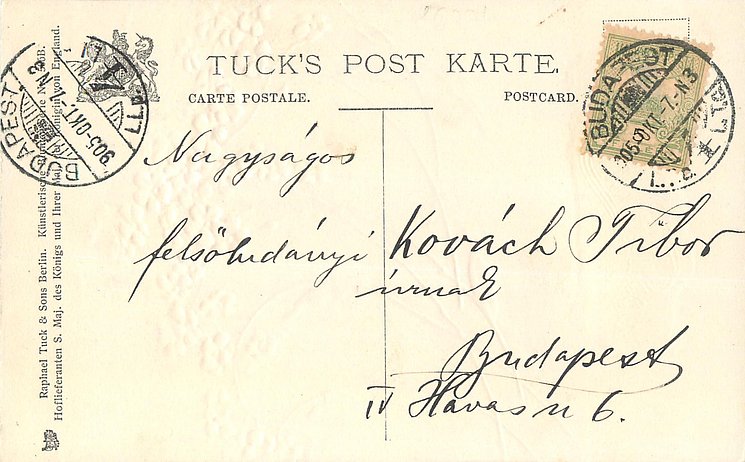 TUCK'S POST KARTE.
CARTE POSTALE. POSTCARD.
BUDAPEST
905 OKT
N3
BUDAPEST
905 OKT 7 N3
Nagyságos
Kovách Tibor
úrnak
Budapest
IV Havas u 6.
Raphael Tuck & Sons Berlin.
Hoflieferanten S. Maj. des Königs und Ihrer Maj. Königin von England.